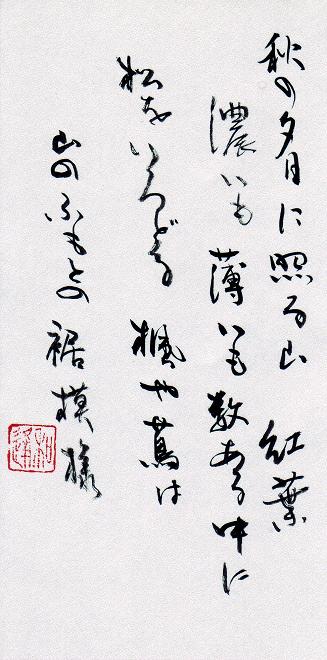 秋の夕日に照る山 紅葉
濃いも薄いも数ある中に
松をいろどる 楓や蔦は
山のふもとの裾模様